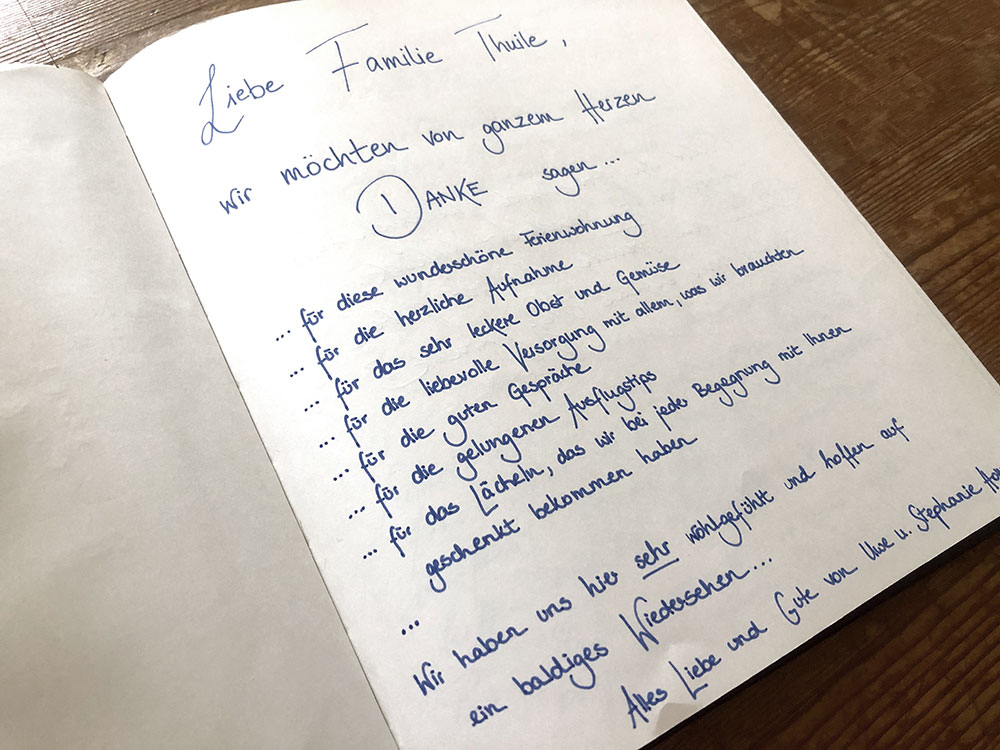 Liebe Familie Thuile,
wir möchten von ganzem Herzen
DANKE sagen...
... für diese wunderschöne Ferienwohnung
... für die herzliche Aufnahme
... für das sehr leckere Obst und Gemüse
... für die liebevolle Versorgung mit allem, was wir brauchten
... für die guten Gespräche
... für die gelungenen Ausflugstips
... für das Lächeln, das wir bei jeder Begegnung mit Ihnen
geschenkt bekommen haben
...
Wir haben uns hier sehr wohlgefühlt und hoffen auf
ein baldiges Wiedersehen...
Alles Liebe und Gute von Uwe u. Stephanie